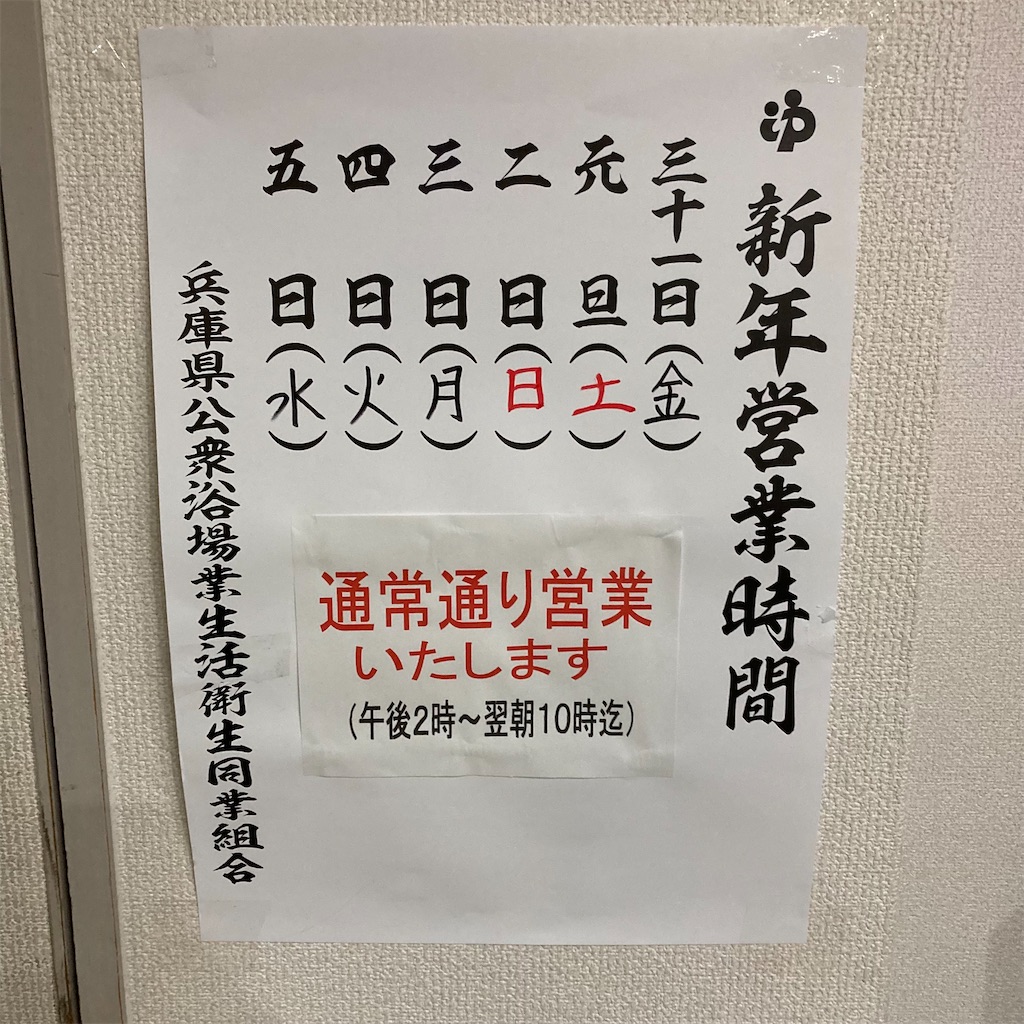 新年営業時間
三十一日(金)
元旦(土)
二日(日)
三日(月)
四日(火)
五日(水)
通常通り営業
いたします
(午後2時~翌朝10時迄)
兵庫県公衆浴場業生活衛生同業組合